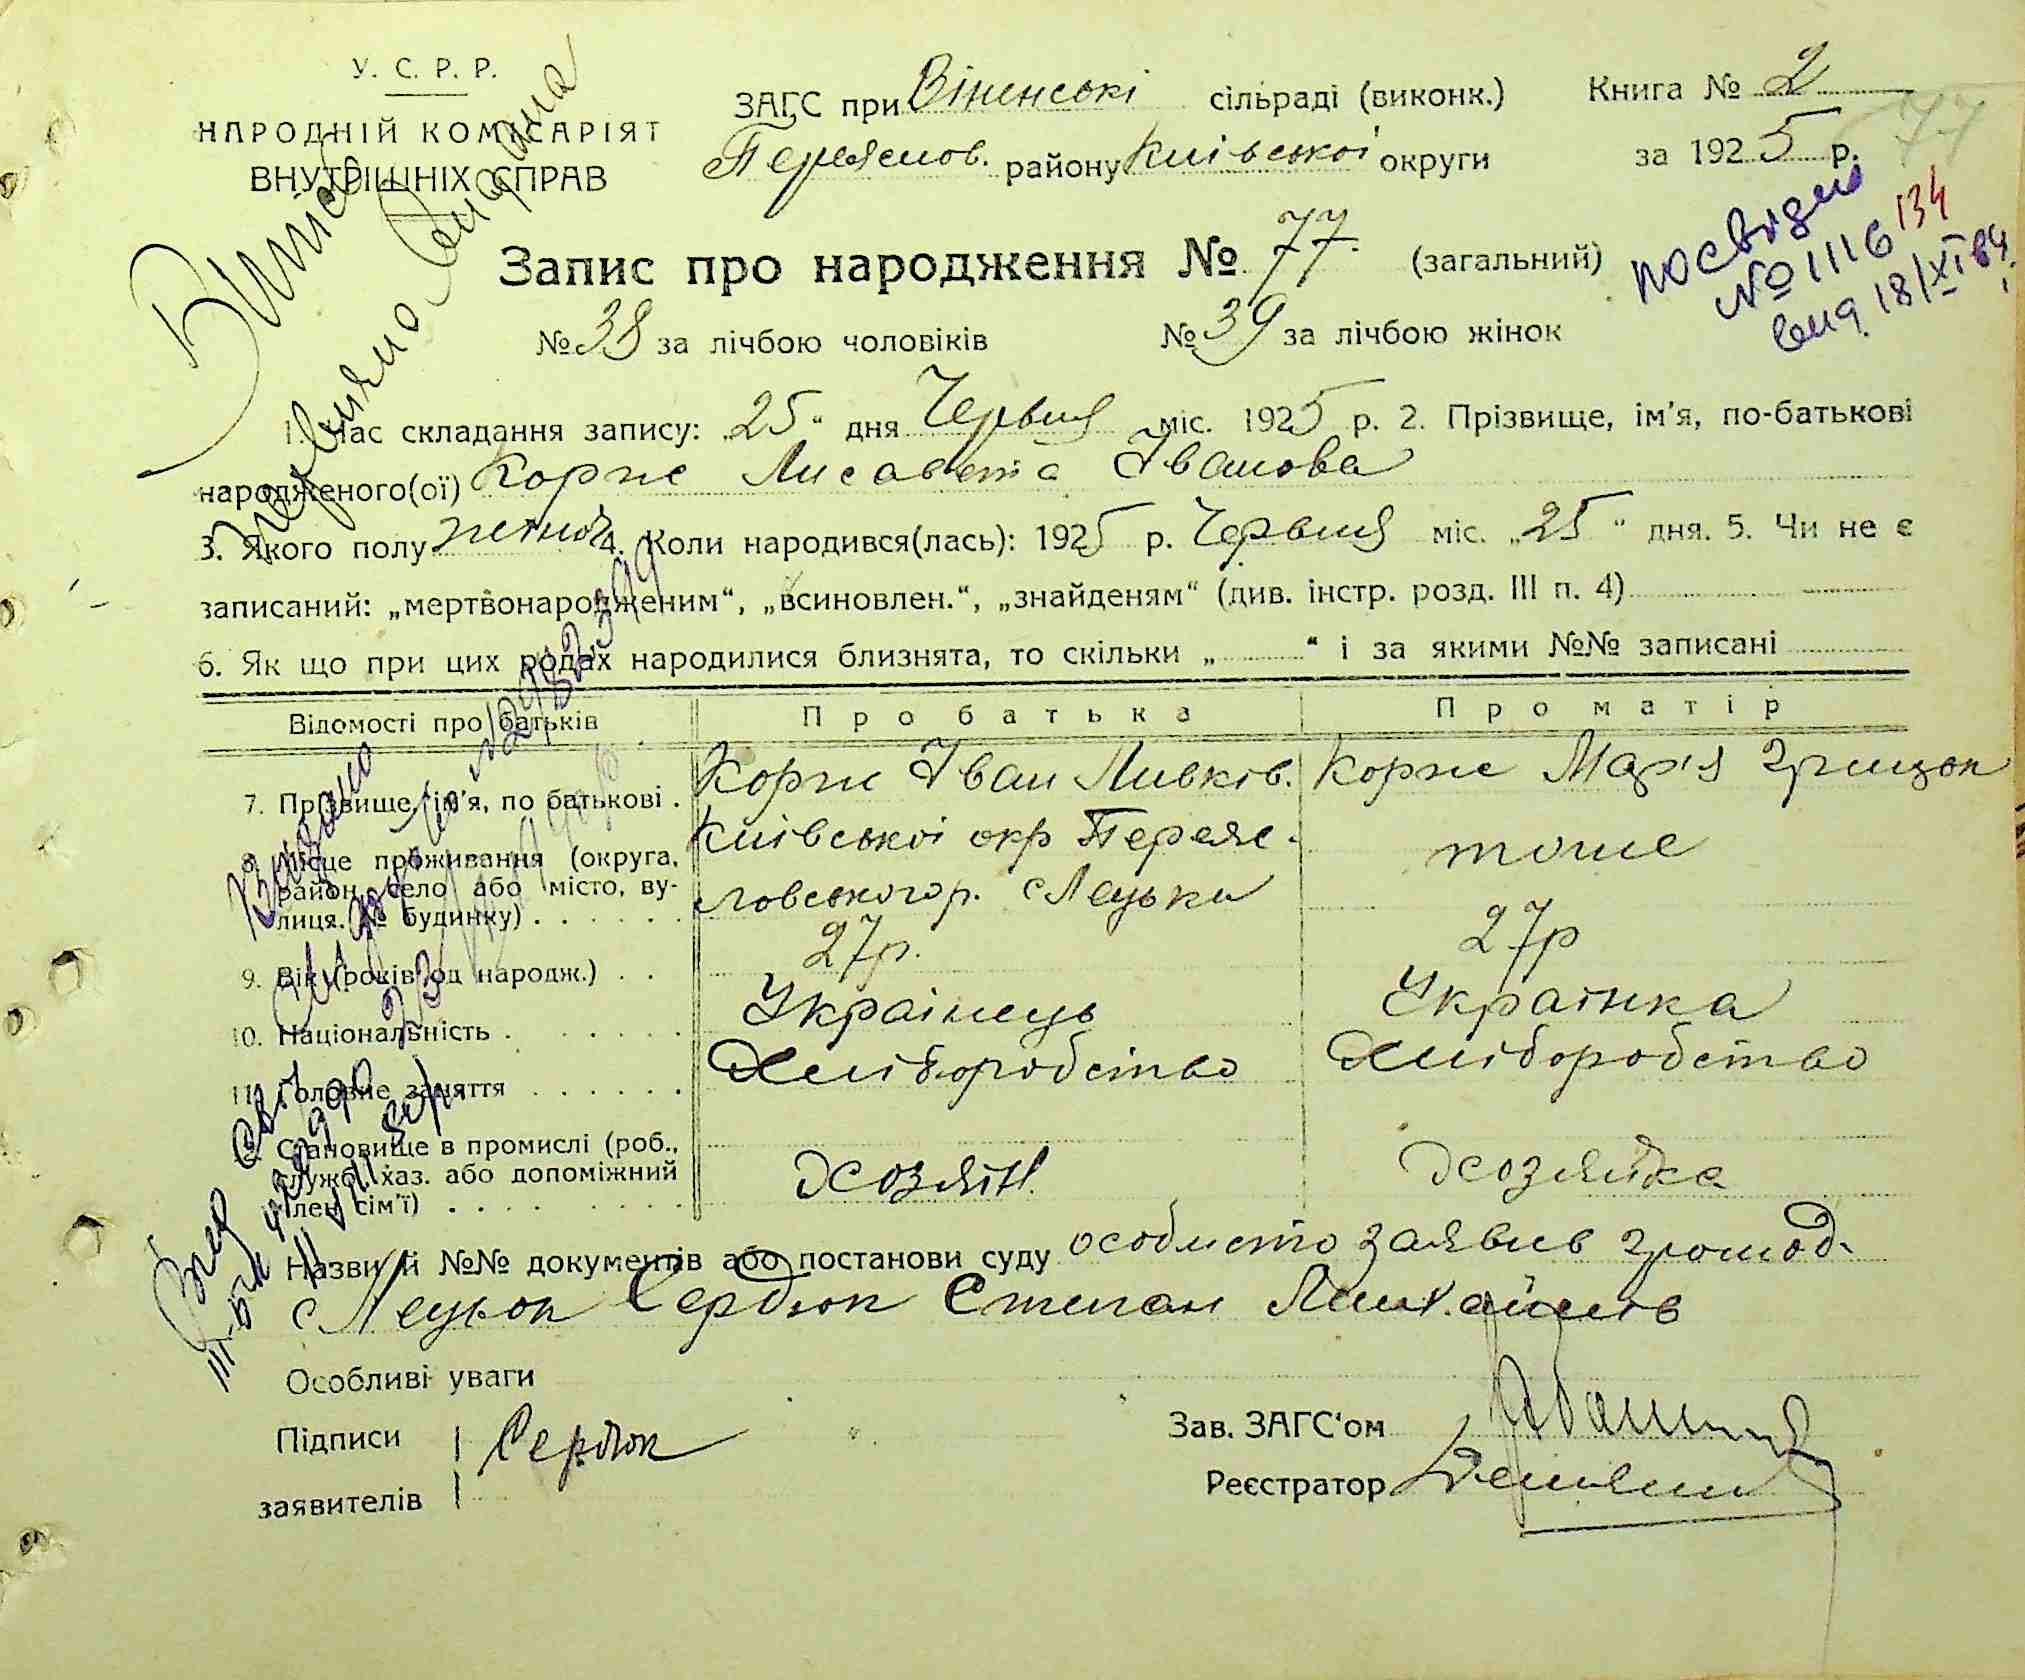 У. С. Р. Р.
НАРОДНІЙ КОМІСАРІЯТ
ВНУТРІШНІХ СПРАВ
ЗАГС при Віненські сільраді (виконк.)
Переяслов. району Київської округи
Книга № 2
за 1925 р.
77
посвідчен
№ 1116 134
вид. 18/XI 64
Запис про народження № 77. (загальний)
№ 38 за лічбою чоловіків № 39 за лічбою жінок
1. Час складання запису: „25“ дня Червня міс. 1925 р. 2. Прізвище, ім'я, по-батькові
народженого(ої) Корж Лисавета Іванова
3. Якого полу жіноч. 4. Коли народився(лась): 1925 р. Червня міс. „25“ дня. 5. Чи не є
записаний: „мертвонародженим“, „всиновлен.“, „знайденям“ (див. інстр. розд. III п. 4)
6. Як що при цих родах народилися близнята, то скільки „ “ і за якими №№ записані
Відомості про батьків Про батька Про матір
7. Прізвище, ім'я, по батькові . Корж Іван Ливків. Корж Мар'я Грицьк
8. Місце проживання (округа, район, село або місто, вулиця, № будинку) . . . . . .
Київської окр Переяс-
ловського р. с Лецьки
тоже
9. Вік (років од народж.) . . 27р. 27р
10. Національність . . . . . . Українець Українка
11. Головне заняття . . . . . . Хліборобство Хліборобство
Становище в промислі (роб., служб. хаз. або допоміжний член сім'ї) . . . . . . . . .
Хозяїн. Хозяйка
Назви й №№ документів або постанови суду особисто заявив громад.
с Лецьок Сердюк Степан Михайлів
Особливі уваги
Підписи
заявителів
Сердюк
Зав. ЗАГС'ом
Реєстратор
Видано